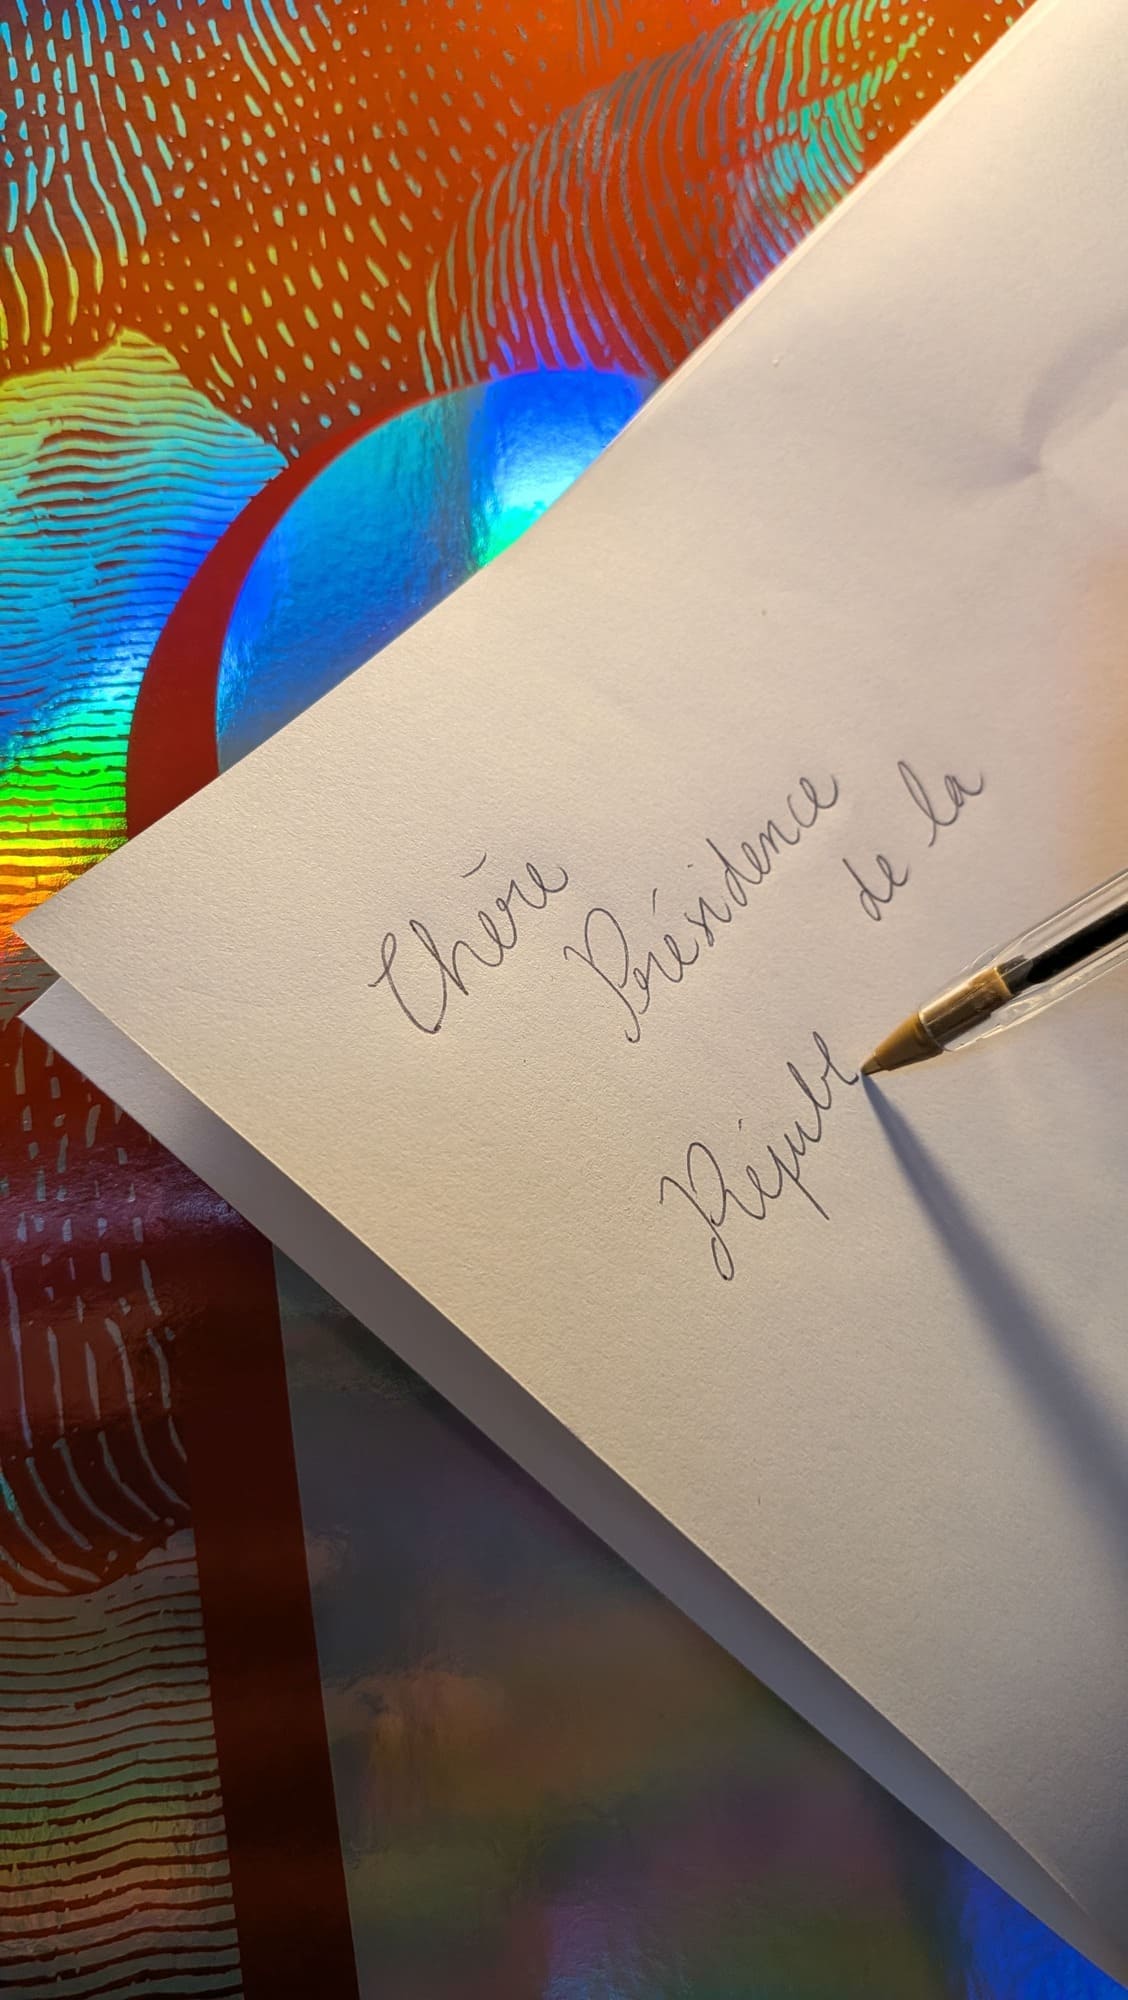 Chère
Présidence
de la
Républ